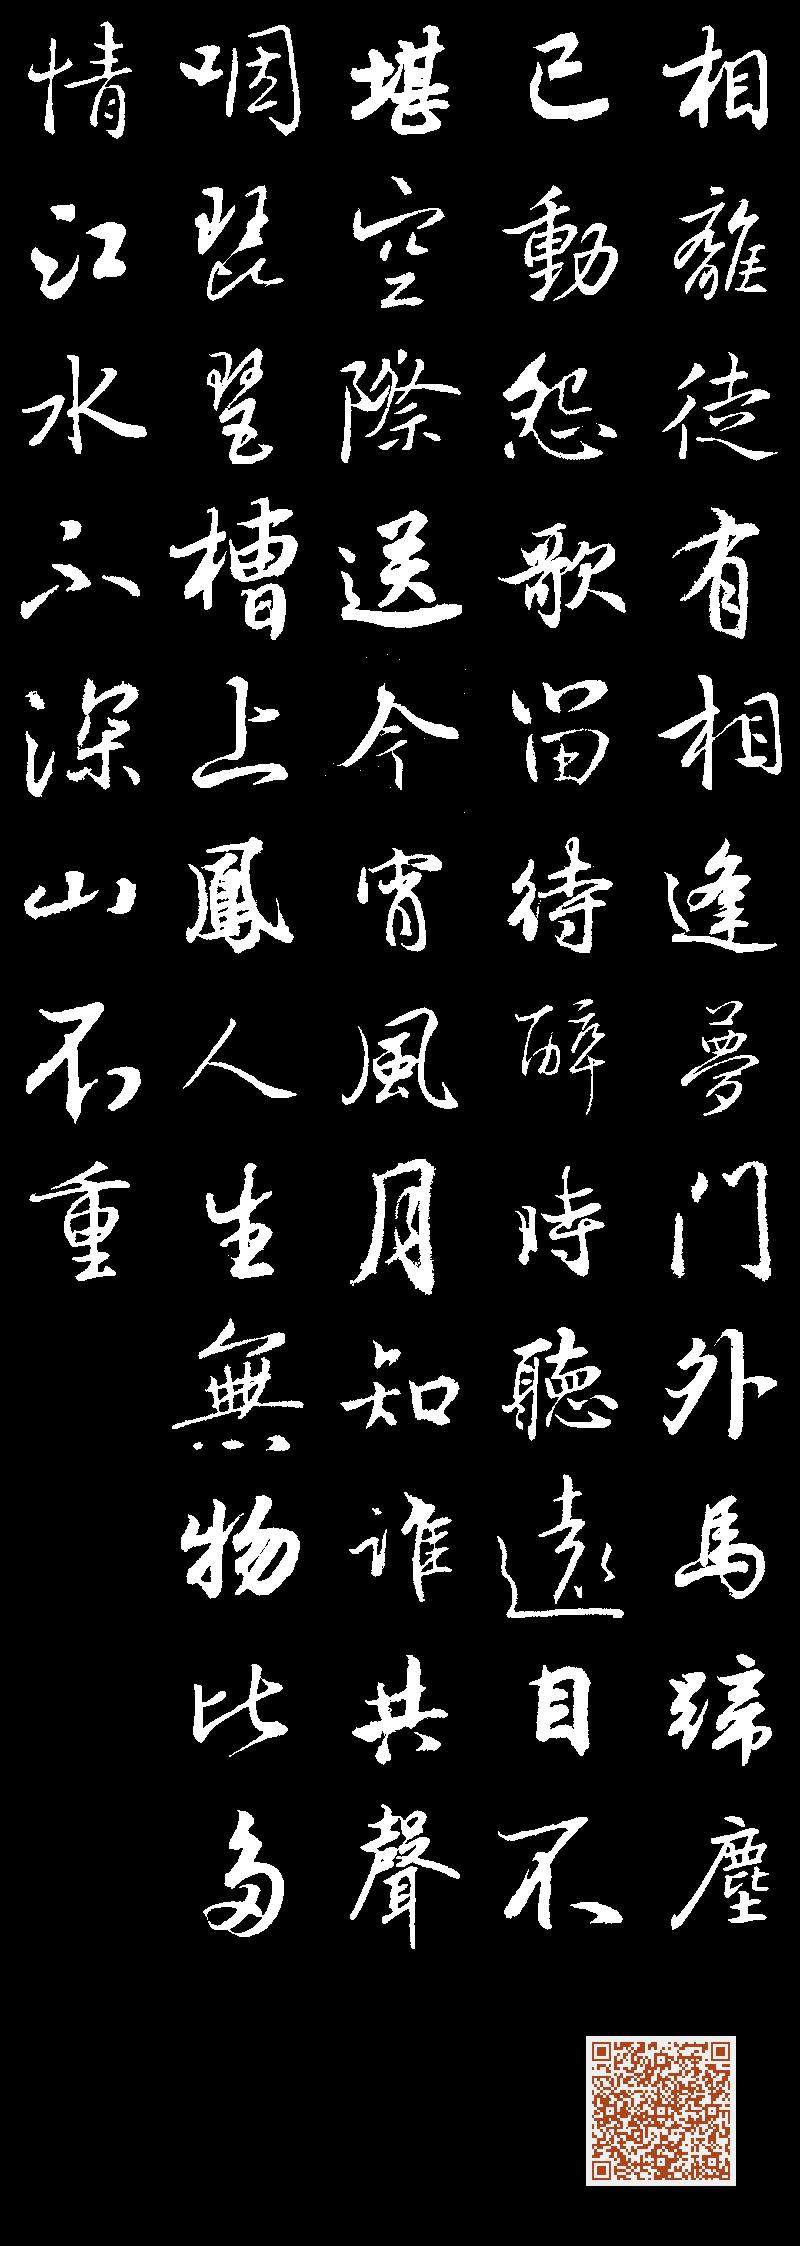 相離徒有相逢夢門外馬蹄塵
已動怨歌留待醉時聽遠目不
堪空際送今宵風月知誰共聲
咽琵琶槽上鳳人生無物比多
情江水不深山不重